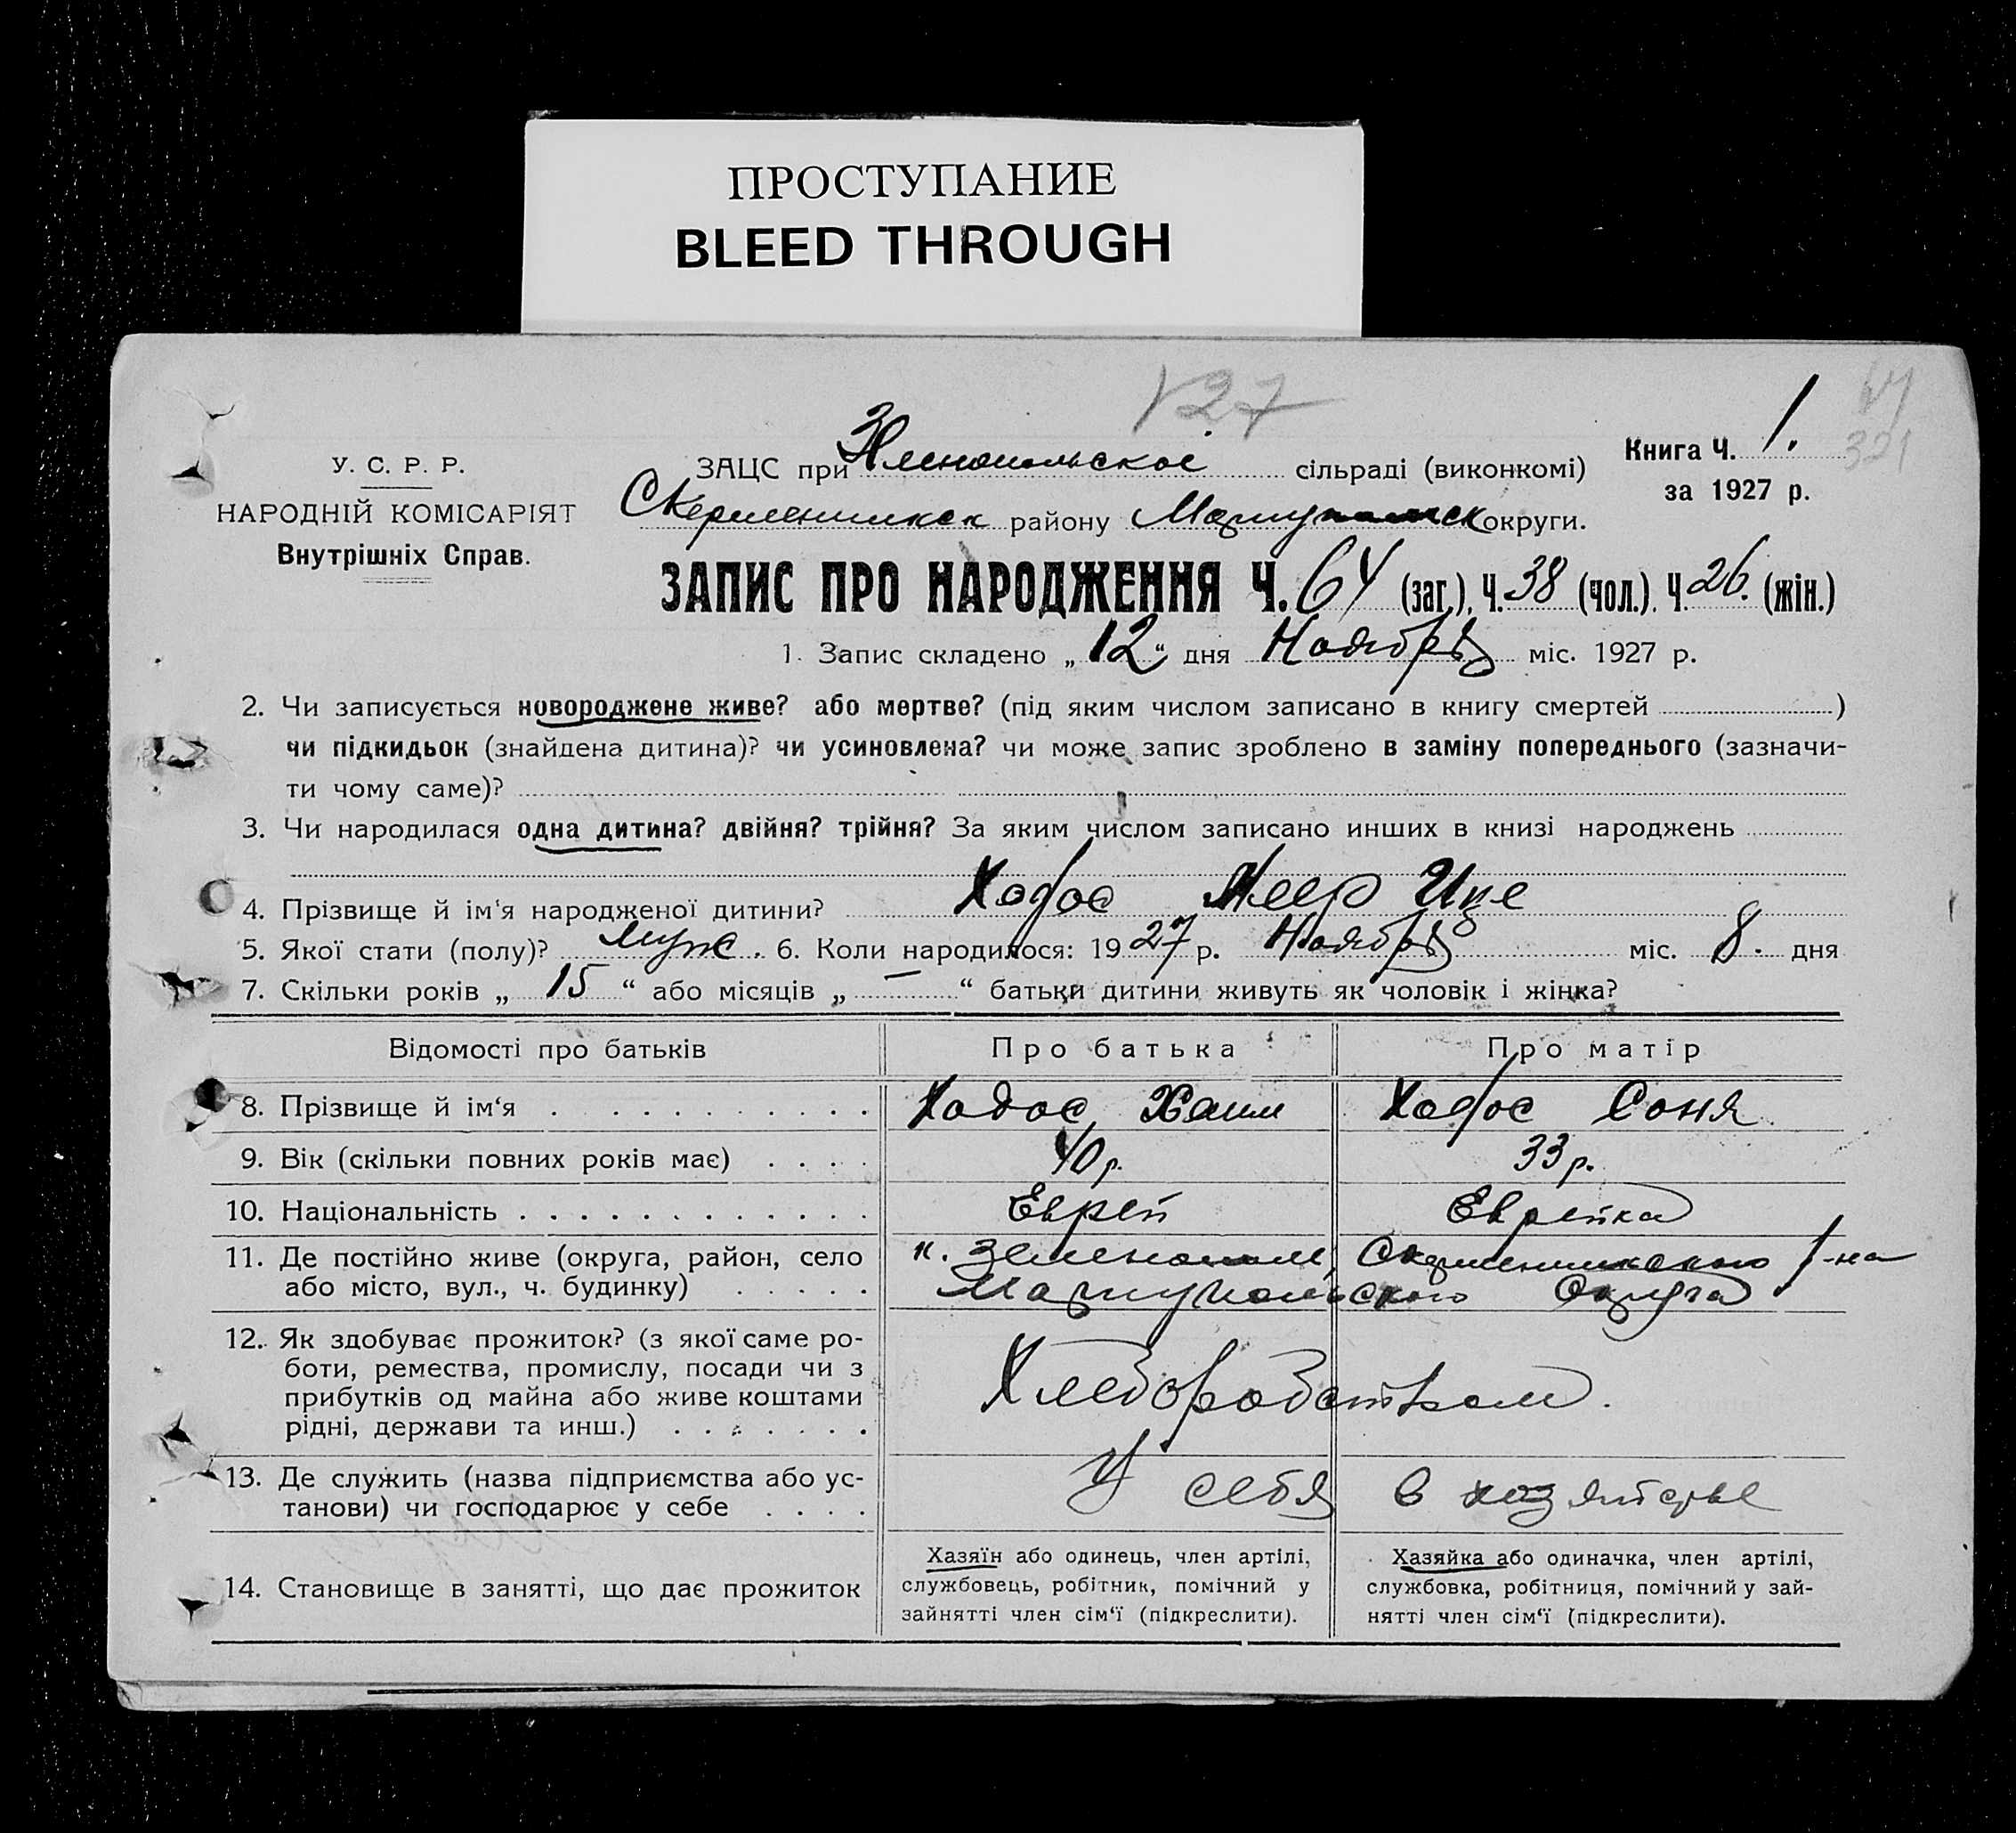 ПРОСТУПАНИЕ
BLEED THROUGH
27
У. С. Р. Р.
НАРОДНІЙ КОМІСАРІЯТ
Внутрішніх Справ.
ЗАЦС при сільраді (виконкомі)
району Мариупольск округи.
Книга Ч. 1.
за 1927 р.
321
ЗАПИС ПРО НАРОДЖЕННЯ Ч. 64 (заг.), Ч. 38 (чол.). Ч. 26. (жін.)
1. Запис складено „ 12 “ дня Ноября міс. 1927 р.
2. Чи записується новороджене живе? або мертве? (під яким числом записано в книгу смертей )
чи підкидьок (знайдена дитина)? чи усиновлена? чи може запис зроблено в заміну попереднього (зазначи-
ти чому саме)?
3. Чи народилася одна дитина? двійня? трійня? За яким числом записано инших в книзі народжень
4. Прізвище й ім'я народженої дитини? Ходос Меер Ице
5. Якої стати (полу)? муж. 6. Коли народилося: 1927 р. Ноября міс. 8. дня
7. Скільки років „ 15 “ або місяців „ — “ батьки дитини живуть як чоловік і жінка?
Відомості про батьків Про батька Про матір
8. Прізвище й ім'я . . . . . . . . . . Ходос Хаим Ходос Соня
9. Вік (скільки повних років має) . . . . 40 р. 33 р.
10. Національність . . . . . . . . . . . . . Еврей Еврейка
11. Де постійно живе (округа, район, село
або місто, вул., ч. будинку) . . . . .
к. Зеленополь, р-на
Мариупольского Округа
12. Як здобуває прожиток? (з якої саме ро-
боти, ремества, промислу, посади чи з
прибутків од майна або живе коштами
рідні, держави та инш.) . . . . . . .
Хлеборобством.
13. Де служить (назва підприємства або ус-
танови) чи господарює у себе . . . .
У себя в хозяйстве
14. Становище в занятті, що дає прожиток
Хазяїн або одинець, член артілі,
службовець, робітник, помічний у
зайнятті член сім'ї (підкреслити).
Хазяйка або одиначка, член артілі,
службовка, робітниця, помічний у зай-
нятті член сім'ї (підкреслити).